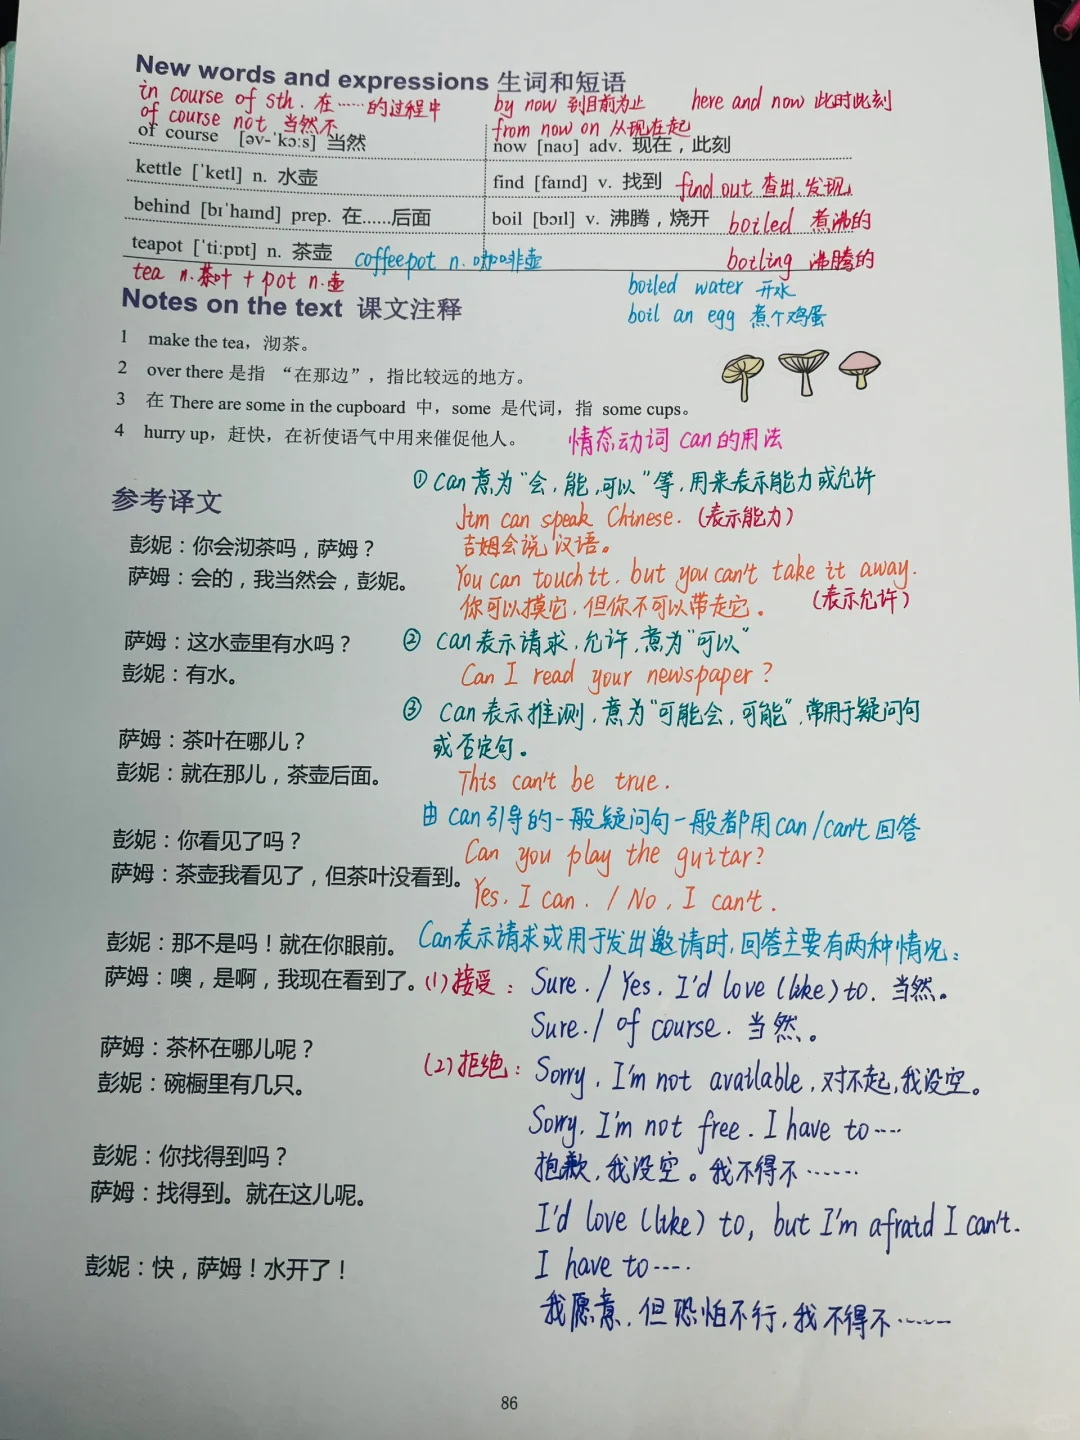 New words and expressions 生词和短语
in course of sth. 在……的过程中
of course not 当然不
by now 到目前为止 here and now 此时此刻
from now on 从现在起
of course [əv-ˈkɔːs] 当然
now [naʊ] adv. 现在，此刻
kettle [ˈketl] n. 水壶
find [faɪnd] v. 找到 find out 查出,发现
behind [bɪˈhaɪnd] prep. 在……后面
boil [bɔɪl] v. 沸腾，烧开 boiled 煮沸的
teapot [ˈtiːpɒt] n. 茶壶 coffeepot n. 咖啡壶
boiling 沸腾的
tea n.茶叶 + pot n.壶
boiled water 开水
boil an egg 煮个鸡蛋
Notes on the text 课文注释
1 make the tea，沏茶。
2 over there 是指 “在那边”，指比较远的地方。
3 在 There are some in the cupboard 中，some 是代词，指 some cups。
4 hurry up，赶快，在祈使语气中用来催促他人。
情态动词 can 的用法
① Can 意为“会,能,可以”等,用来表示能力或允许
Jim can speak Chinese. (表示能力)
吉姆会说汉语。
You can touch it, but you can't take it away.
你可以摸它,但你不可以带走它。 (表示允许)
② Can 表示请求,允许,意为“可以”
Can I read your newspaper?
③ Can 表示推测,意为“可能会,可能”,常用于疑问句
或否定句。
This can't be true.
由 can 引导的一般疑问句一般都用 can/can't 回答
Can you play the guitar?
Yes, I can. / No, I can't.
Can表示请求或用于发出邀请时,回答主要有两种情况:
(1)接受: Sure. / Yes, I'd love (like) to. 当然。
Sure. / of course. 当然。
(2)拒绝: Sorry, I'm not available. 对不起,我没空。
Sorry, I'm not free. I have to……
抱歉,我没空。我不得不……
I'd love (like) to, but I'm afraid I can't.
I have to……
我愿意,但恐怕不行,我不得不……
参考译文
彭妮：你会沏茶吗，萨姆？
萨姆：会的，我当然会，彭妮。
萨姆：这水壶里有水吗？
彭妮：有水。
萨姆：茶叶在哪儿？
彭妮：就在那儿，茶壶后面。
彭妮：你看见了吗？
萨姆：茶壶我看见了，但茶叶没看到。
彭妮：那不是吗！就在你眼前。
萨姆：噢，是啊，我现在看到了。
萨姆：茶杯在哪儿呢？
彭妮：碗橱里有几只。
彭妮：你找得到吗？
萨姆：找得到。就在这儿呢。
彭妮：快，萨姆！水开了！
86